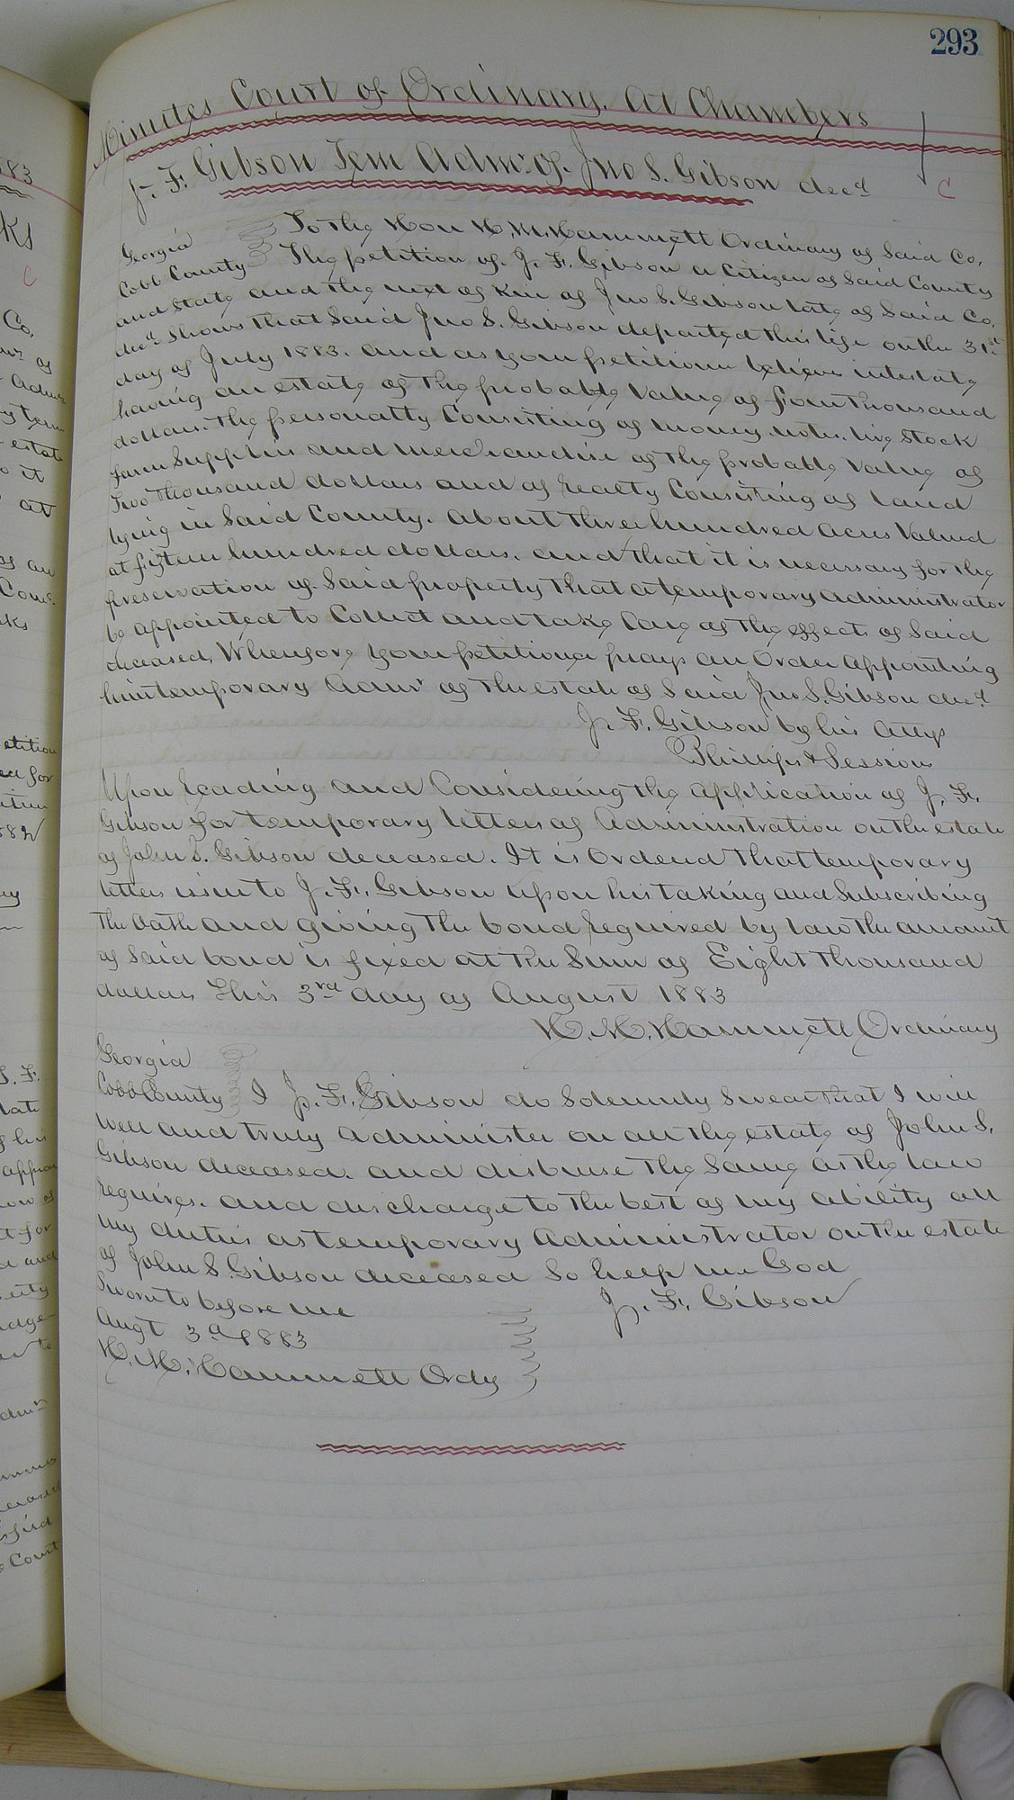 293
Minutes Court of Ordinary. At Chambers
J. F. Gibson Tem Admr. of. Jno S. Gibson decd
C
Georgia
Cobb County
To The Hon H. M. Hammett Ordinary of Said Co.
The petition of J. F. Gibson a Citizen of Said County
and State and the next of Kin of Jno S. Gibson late of Said Co.
decd. Shows that Said Jno S. Gibson departed this life on the 31st
day of July 1883. and as your petitioner believes intestate
having an estate of the probable value of four thousand
dollars. the personalty Consisting of money. notes. live Stock
farm Supplies and merchandise of the probable value of
Two thousand dollars and of realty Consisting of land
lying in Said County. about three hundred acres Valued
at fifteen hundred dollars. and that it is necessary for the
preservation of Said property that a temporary administrator
be appointed to Collect and take Care of the effects of Said
deceased, Wherefore your petitioner prays an Order Appointing
him temporary Admr of the estate of Said Jno S. Gibson decd.
J. F. Gibson by his Attys
Phillips & Sessions
Upon reading and Considering the application of J. F.
Gibson for temporary letters of Administration on the estate
of John S. Gibson deceased. It is Ordered That temporary
letters issue to J. F. Gibson upon his taking and Subscribing
the oath and giving the bond required by law the amount
of Said bond is fixed at the Sum of Eight thousand
dollars This 3rd day of August 1883
H. M. Hammett Ordinary
Georgia
Cobb County I J. F. Gibson do Solemnly Swear that I will
well and truly administer on all the estate of John S.
Gibson deceased. and disburse the Same as the law
requires. and discharge to the best of my ability all
my duties as temporary Administrator on the estate
of John S. Gibson deceased So help me God
Sworn to before me
J. F. Gibson
Augt 3d 1883
H. M. Hammett Ordy